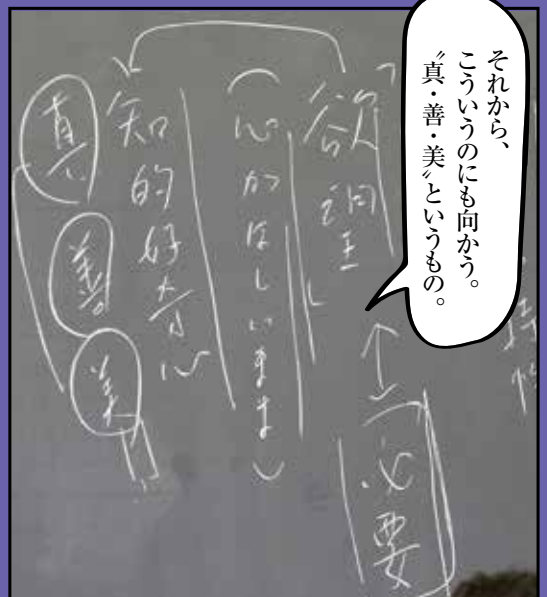 それから、
こういうのにも向かう。
〝真・善・美〟というもの。
「欲望」
↕
必要
(心がほしいまま)
知的好奇心
真
善
美